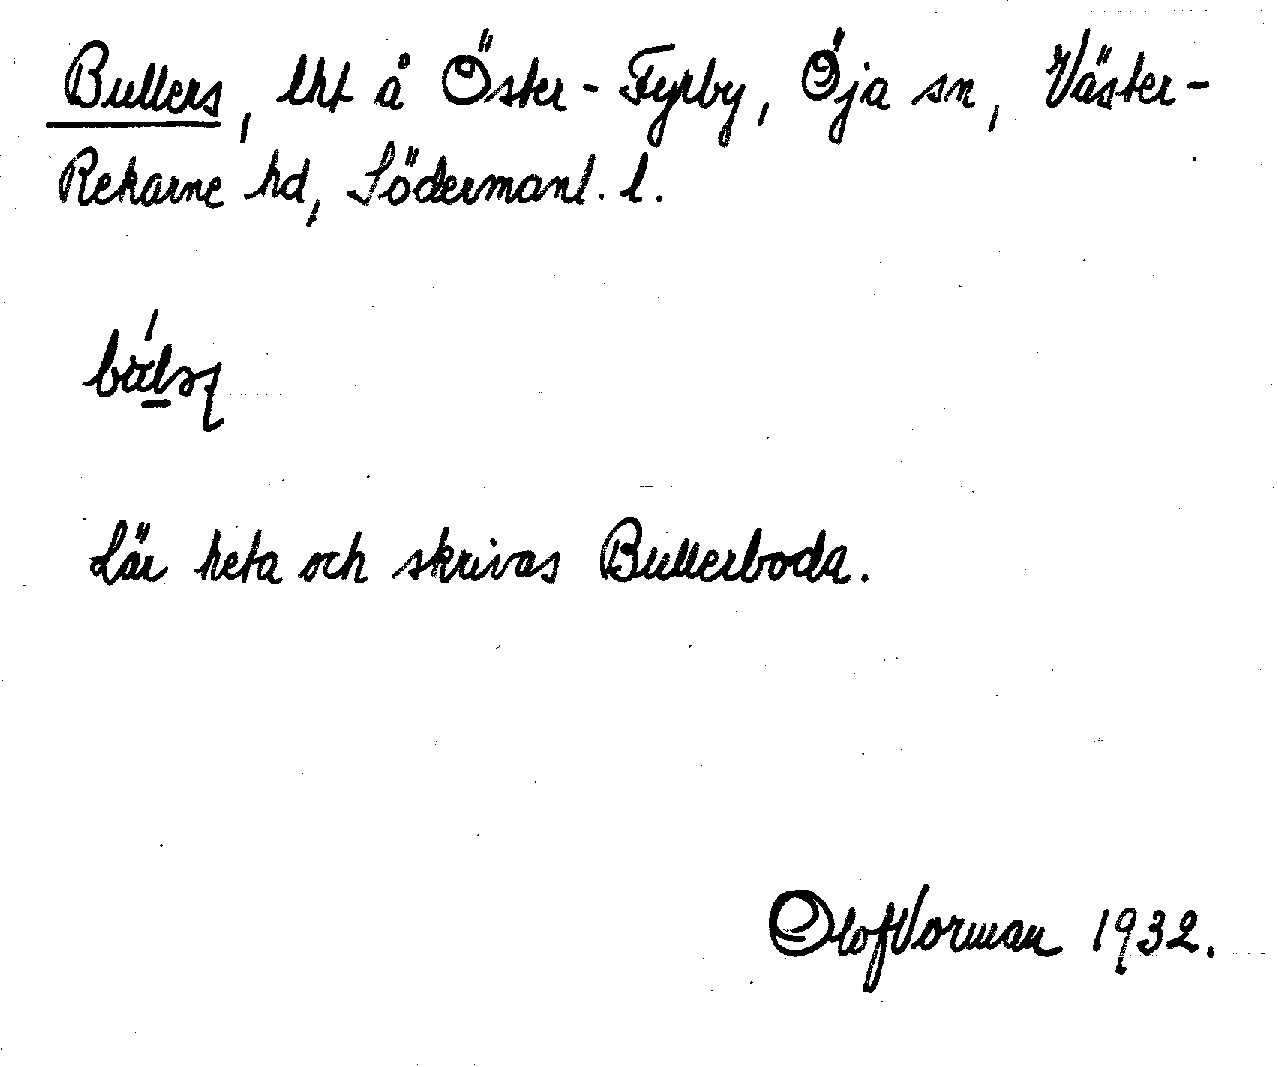 Bullers, lht å Öster-Fyrby, Öja sn, Väster-
Rekarne hd, Södermanl. l.
Lär heta och skrivas Bullerboda.
Olof Vorman 1932.